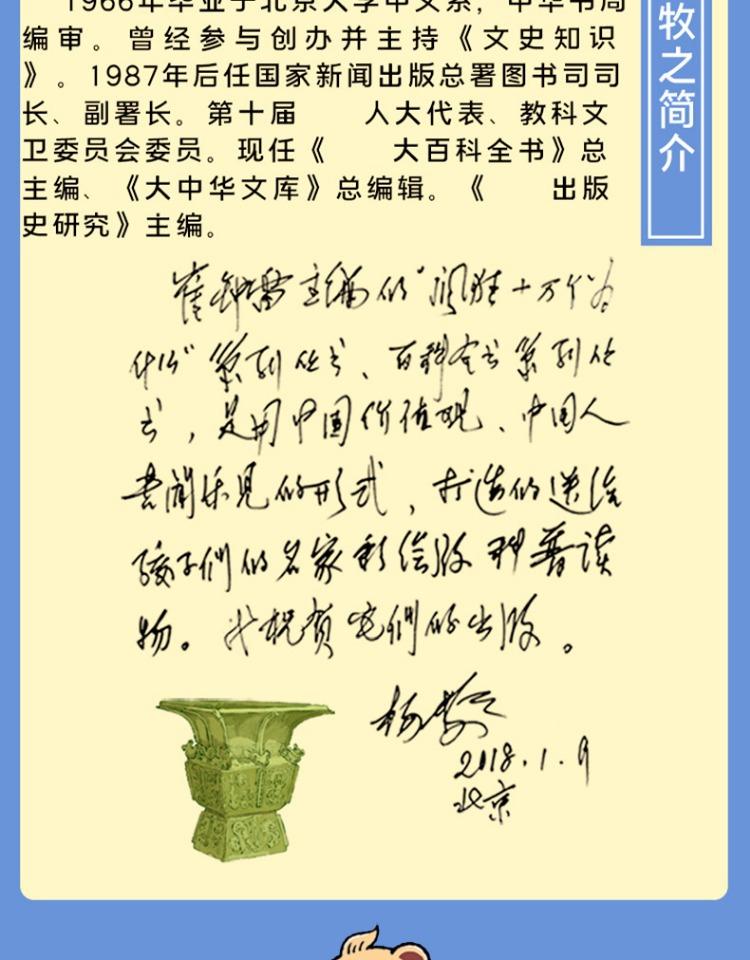 1966年毕业于北京大学中文系，中华书局
编审。曾经参与创办并主持《文史知识
》。1987年后任国家新闻出版总署图书司司
长、副署长。第十届 人大代表、教科文
卫委员会委员。现任《 大百科全书》总
主编、《大中华文库》总编辑。《 出版
史研究》主编。
牧之简介
崔钟雷主编的“阅维十万个为
什么”系列丛书、百科全书系列丛
书，是用中国价值观、中国人
喜闻乐见的形式，打造的送给
孩子们的名家彩绘版科普读
物。我祝贺它们的出版。
杨牧之
2018.1.9
北京